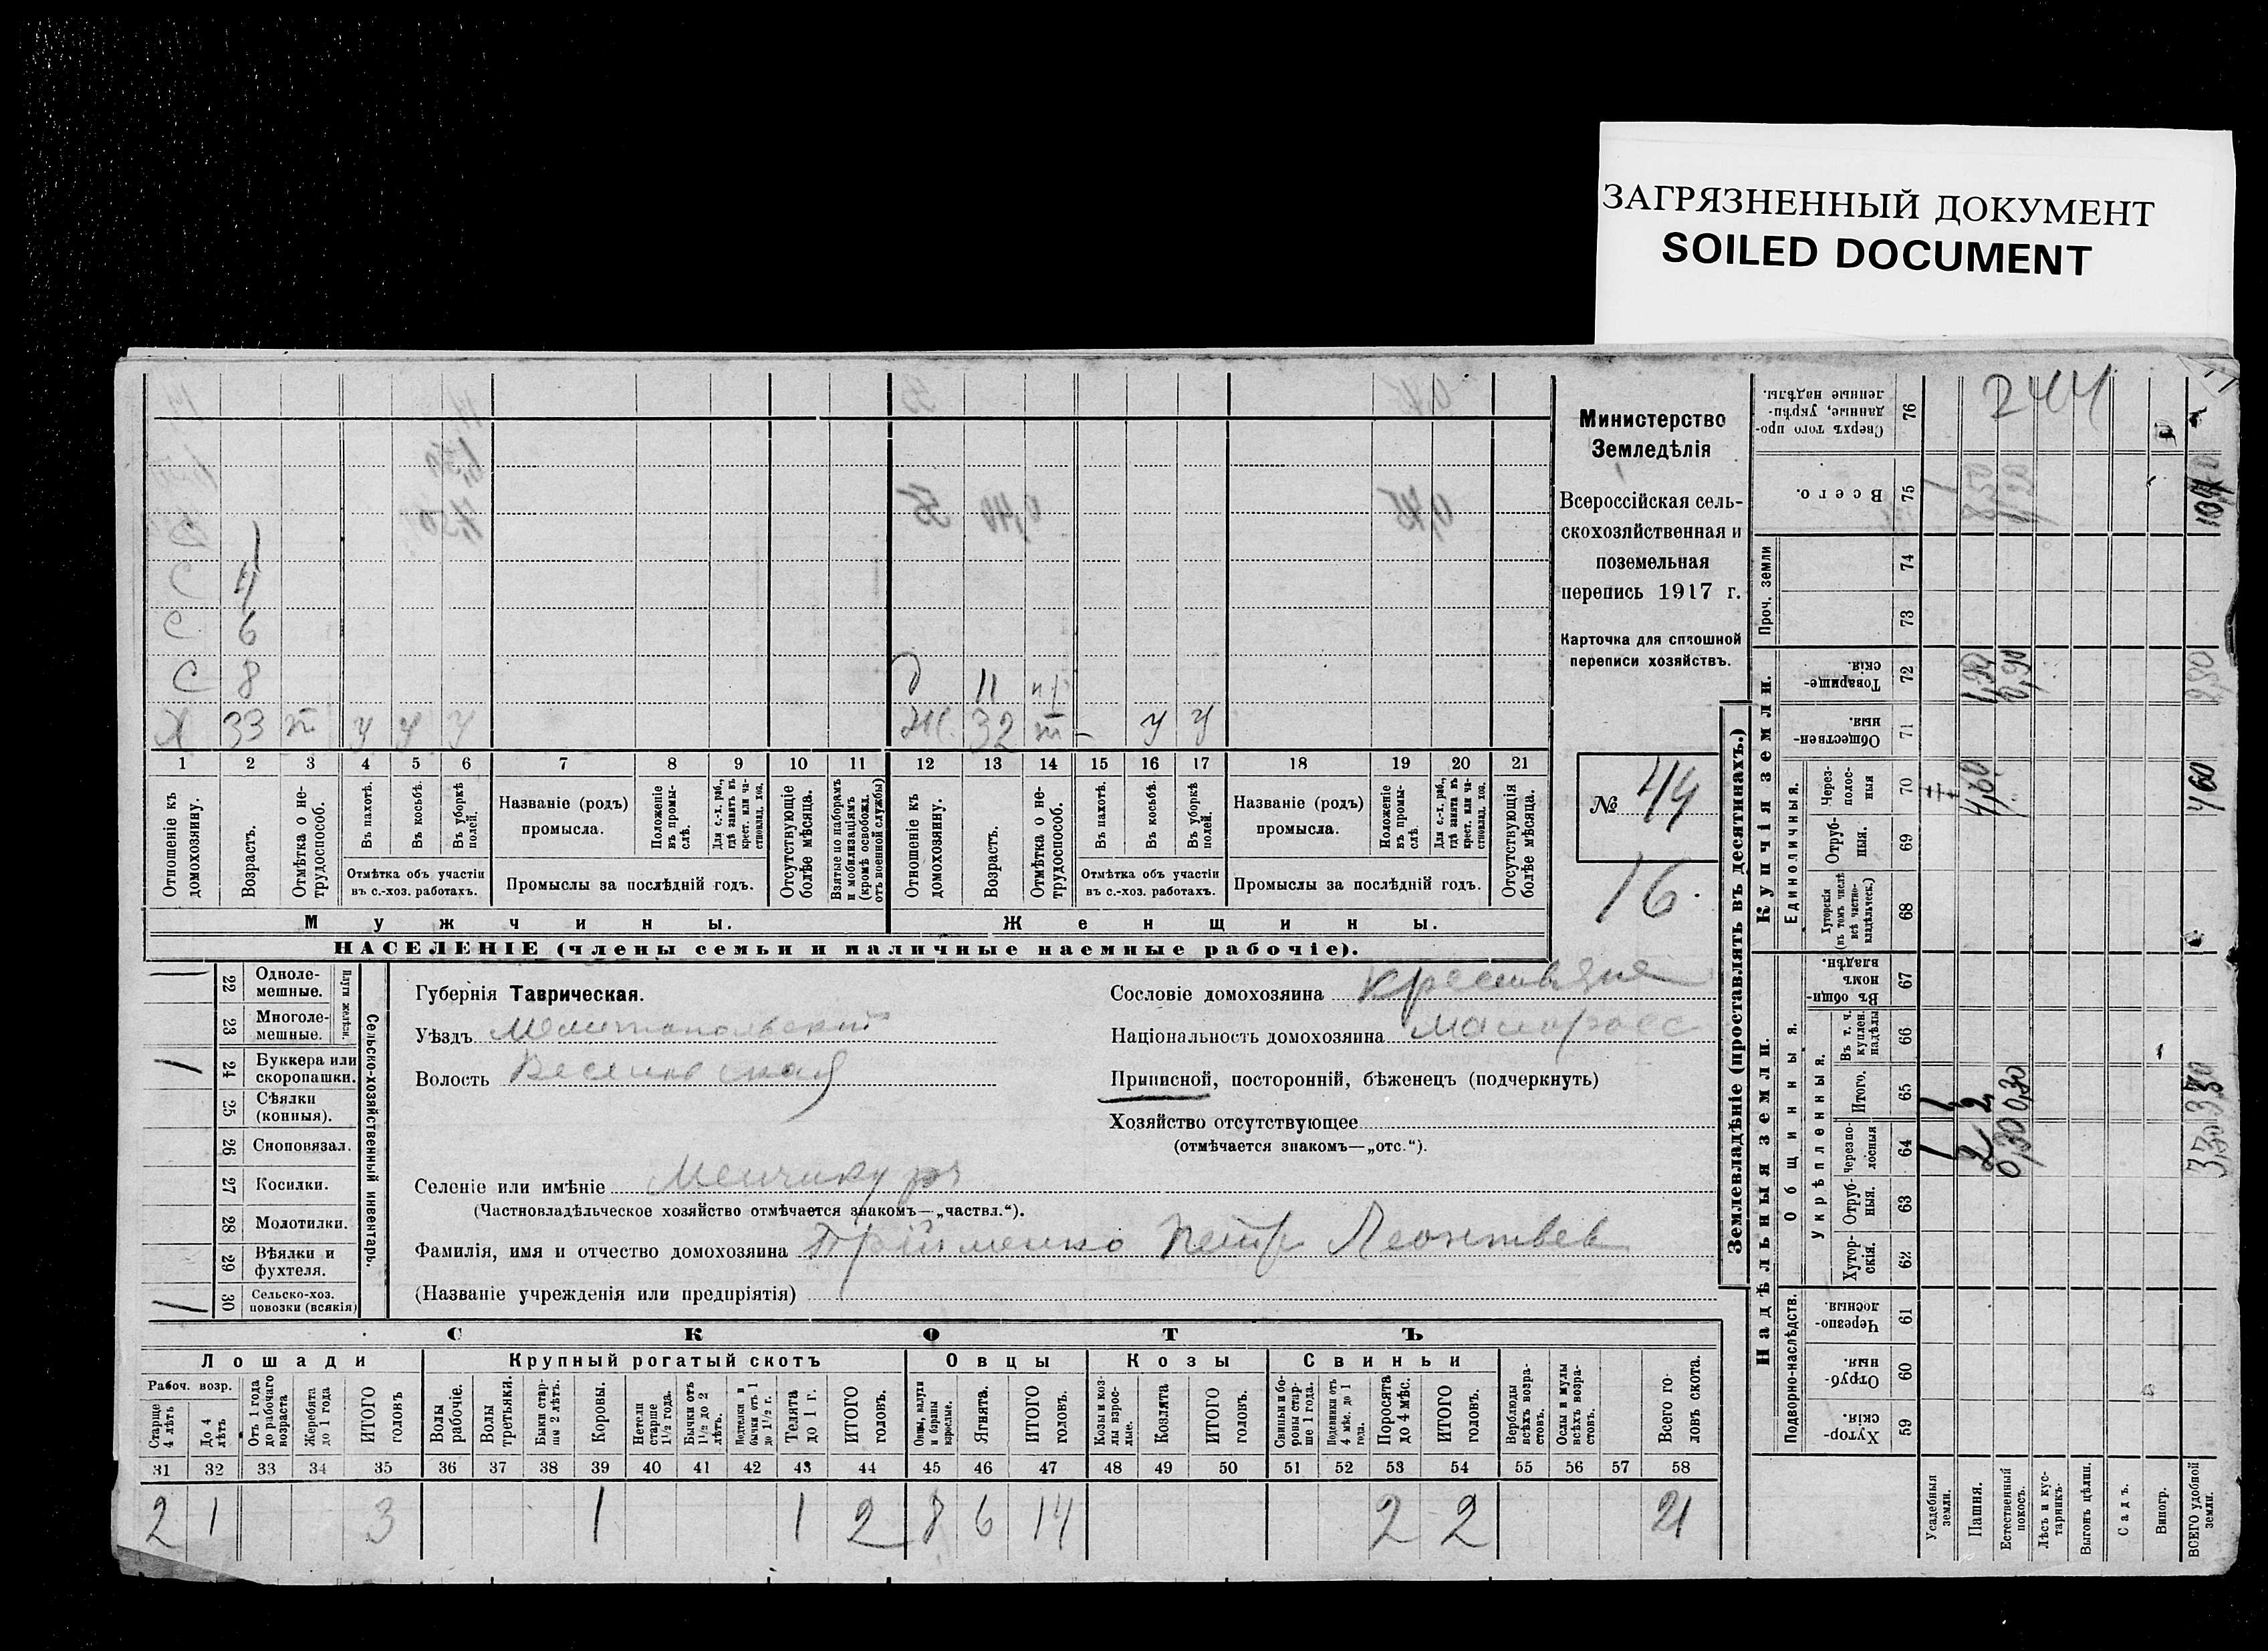 ЗАГРЯЗНЕННЫЙ ДОКУМЕНТ
SOILED DOCUMENT
Министерство
Земледѣлія
Всероссійская сель-
скохозяйственная и
поземельная
перепись 1917 г.
Карточка для сплошной
переписи хозяйствъ.
№ 44
16.
244
1
С 4
С 6
С 8 д 11
Х 33 т у у у Ж 32 т - у у
1 2 3 4 5 6 7 8 9 10 11 12 13 14 15 16 17 18 19 20 21
Отношеніе къ домохозяину.
Возрастъ.
Отмѣтка о не-трудоспособ.
Въ пахотѣ.
Въ косьбѣ.
Въ уборкѣ полей.
Отмѣтка объ участіи въ с.-хоз. работахъ.
Названіе (родъ) промысла.
Положеніе въ промы-слѣ.
Для с.-х. раб., гдѣ занятъ въ крест. или ча-стновлад. хоз.
Промыслы за послѣдній годъ.
Отсутствующіе болѣе мѣсяца.
Взятые по наборамъ и мобилизаціямъ (кромѣ освобожд. отъ военной службы)
Отношеніе къ домохозяину.
Возрастъ.
Отмѣтка о не-трудоспособ.
Въ пахотѣ.
Въ косьбѣ.
Въ уборкѣ полей.
Отмѣтка объ участіи въ с.-хоз. работахъ.
Названіе (родъ) промысла.
Положеніе въ промы-слѣ
Для с.-х. раб., гдѣ занята въ крест. или ча-стновлад. хоз.
Промыслы за послѣдній годъ.
Отсутствующія болѣе мѣсяца.
Мужчины. Женщины.
НАСЕЛЕНІЕ (члены семьи и наличные наемные рабочіе).
Сельско-хозяйственный инвентарь.
Плуги желѣзн.
22 Одноле-мешные.
23 Многоле-мешные.
24 Буккера или скоропашки.
25 Сѣялки (конныя).
26 Сноповязал.
27 Косилки.
28 Молотилки.
29 Вѣялки и фухтеля.
30 Сельско-хоз. повозки (всякія)
Губернія Таврическая.
Уѣздъ Мелитопольский
Волость Веселовская
Сословіе домохозяина крестьяне
Національность домохозяина малоросс
Приписной, посторонній, бѣженецъ (подчеркнуть)
Хозяйство отсутствующее
(отмѣчается знакомъ—„отс.“).
Селеніе или имѣніе Менчикуръ
(Частновладѣльческое хозяйство отмѣчается знакомъ—„частвл.“).
Фамилія, имя и отчество домохозяина Прийменко Петр Леонтьев
(Названіе учрежденія или предпріятія)
СКОТЪ
Лошади Крупный рогатый скотъ Овцы Козы Свиньи
Рабоч. возр.
Старше 4 лѣтъ
До 4 лѣтъ
Отъ 1 года до рабочаго возраста
Жеребята до 1 года
ИТОГО головъ
Волы рабочіе.
Волы третьяки.
Быки стар-ше 2 лѣтъ.
Коровы.
Нетели старше 1½ года.
Бычки отъ 1½ до 2 лѣтъ.
Нетелки и бычки отъ 1 до 1½ г.
Телята до 1 г.
ИТОГО головъ.
Овцы, валухи и бараны взрослые.
Ягнята.
ИТОГО головъ.
Козы и коз-лы взрос-лые.
Козлята
ИТОГО головъ.
Свиньи и бо-ровы стар-ше 1 года.
Подсвинки отъ 4 мѣс. до 1 года.
Поросята до 4 мѣс.
ИТОГО головъ.
Верблюды всѣхъ возра-стовъ.
Ослы и мулы всѣхъ возра-стовъ.
Всего го-ловъ скота.
31 32 33 34 35 36 37 38 39 40 41 42 43 44 45 46 47 48 49 50 51 52 53 54 55 56 57 58
2 1 3 1 1 2 8 6 14 2 2 21
Землевладѣніе (проставлять въ десятинахъ.)
Надѣльныя земли. Купчія земли. Проч. земли
Подворно-наслѣдств.
Общинныя.
Укрѣпленныя.
Единоличныя.
Хутор-скія. 59
Отруб-ныя. 60
Черезпо-лосныя. 61
Хутор-скія. 62
Отруб-ныя. 63
Черезпо-лосныя 64
Итого. 65
Въ т. ч. куплен. надѣлы 66
Въ общи-номъ владѣн. 67
Хуторскія (въ томъ числѣ всѣ частно-владѣльческ.) 68
Отруб-ныя. 69
Через-полос-ныя 70
Обществен-ныя. 71
Товарище-скія. 72
73
74
Всего. 75
Сверхъ того про-данные, укрѣп-ленные надѣлы. 76
Усадебныя земли.
Пашня.
Естественный покосъ.
Лѣсъ и кус-тарникъ.
Выгонъ цѣлин.
Садъ.
Виногр.
ВСЕГО удобной земли.
1 1
2 2 4,60
0,30 0,30 0,90
3,30 3,30 4 60